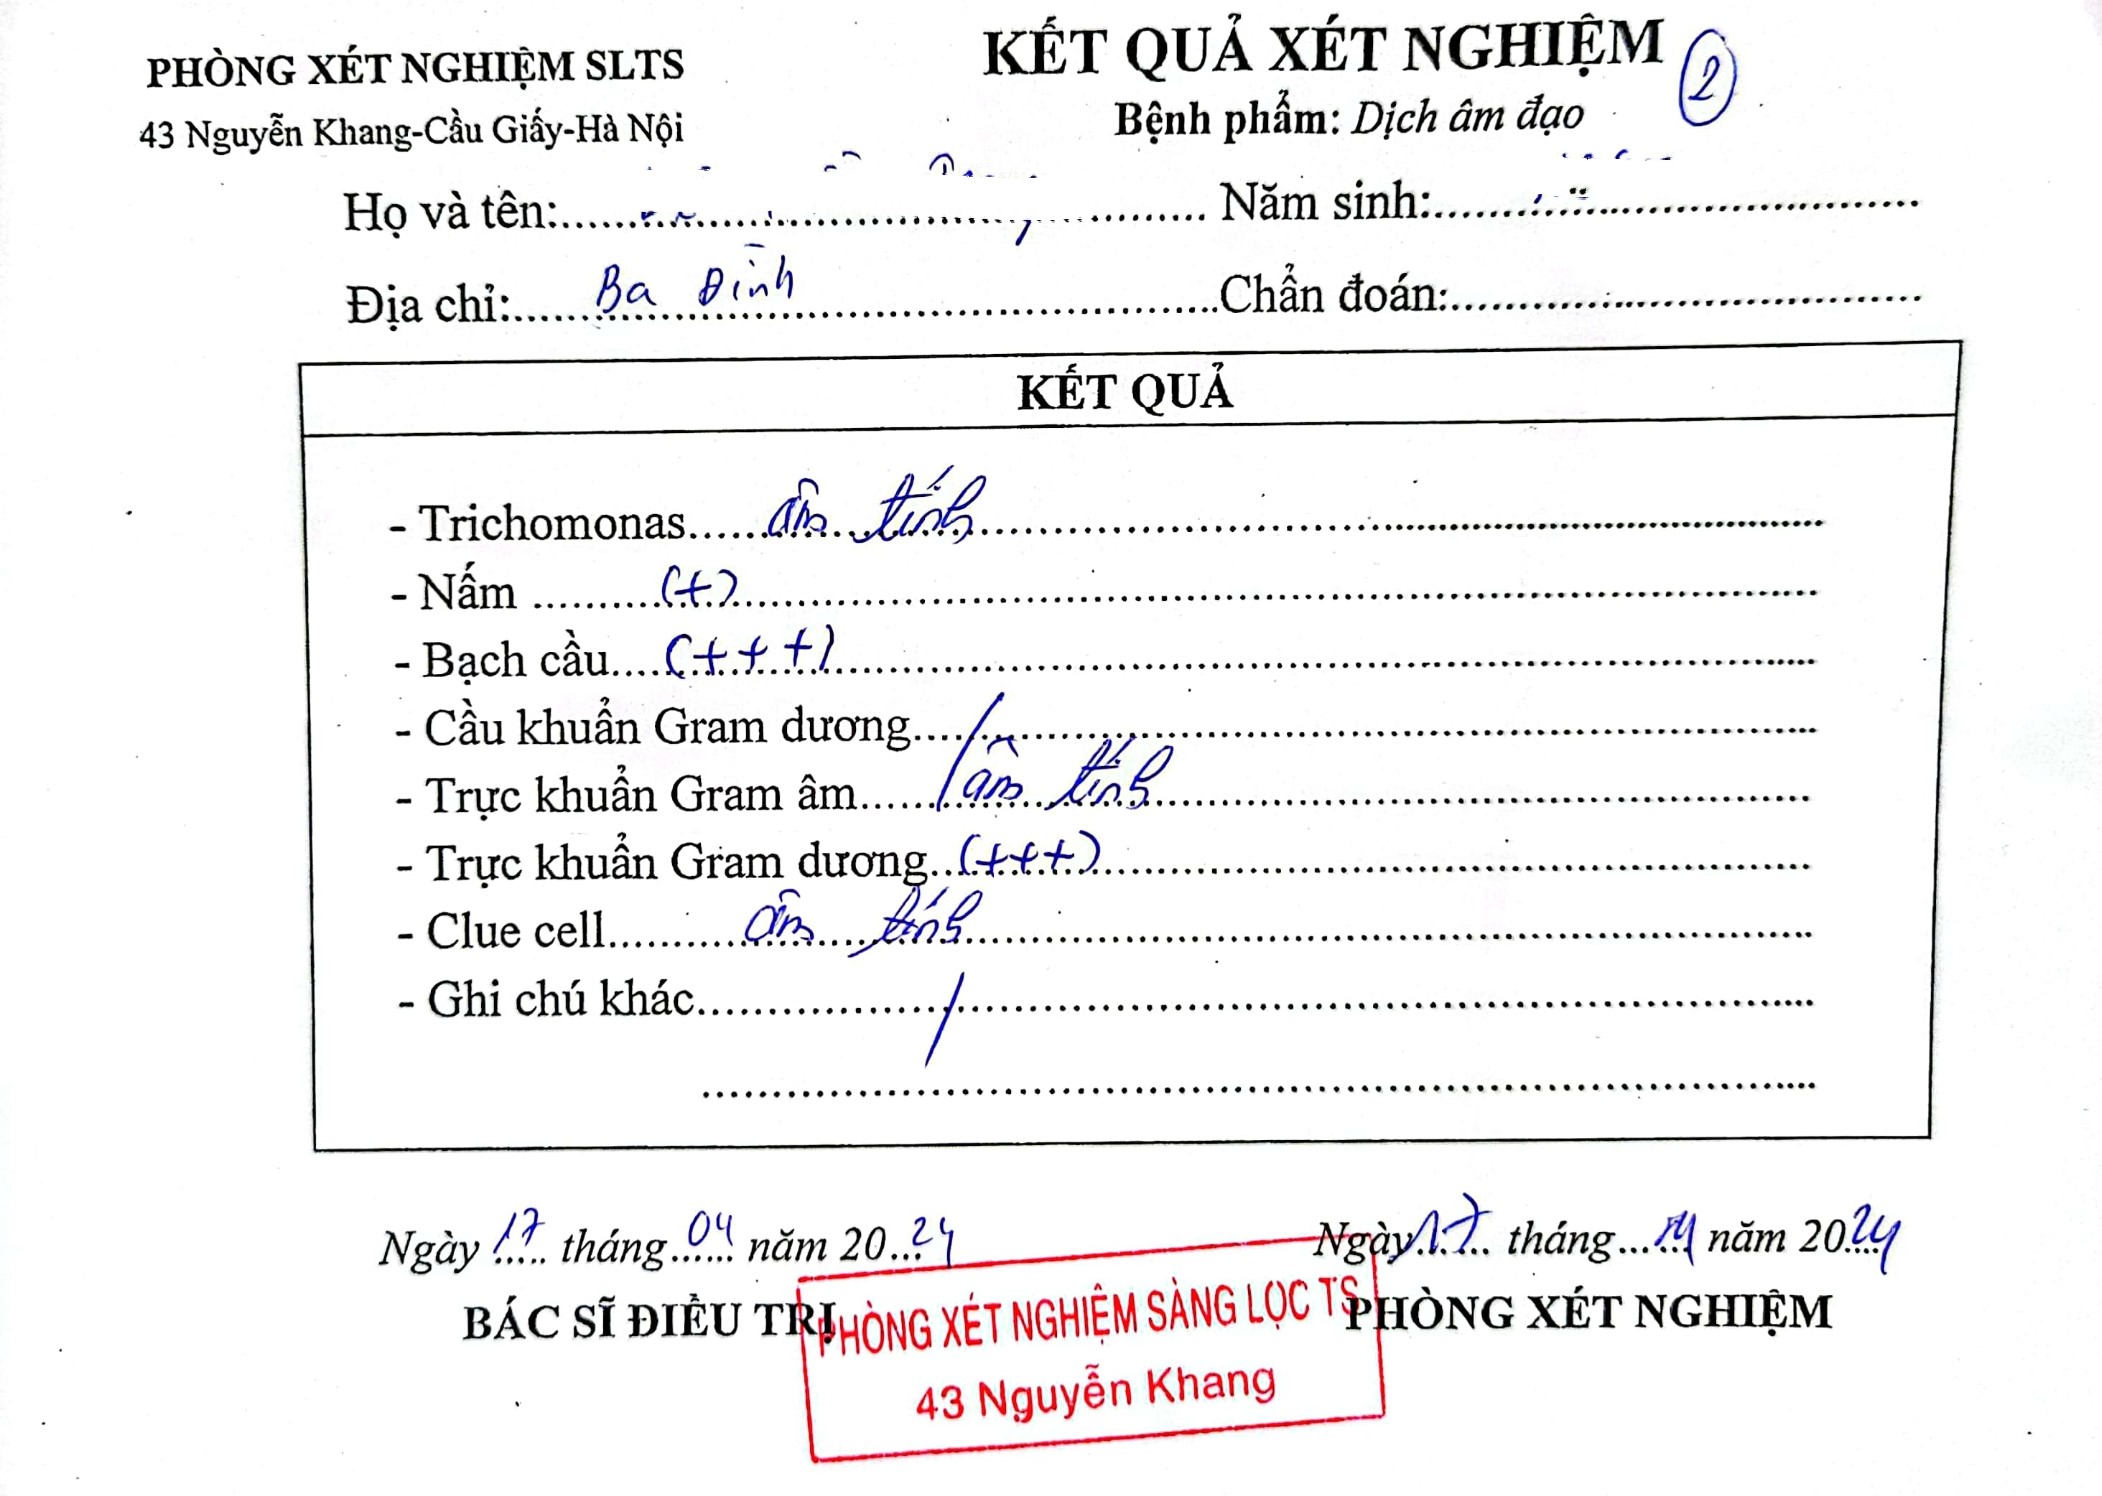 PHÒNG XÉT NGHIỆM SLTS
43 Nguyễn Khang-Cầu Giấy-Hà Nội
KẾT QUẢ XÉT NGHIỆM
2
Bệnh phẩm: Dịch âm đạo
Họ và tên:
Năm sinh:
Địa chỉ: Ba Đình
Chẩn đoán:
KẾT QUẢ
- Trichomonas âm tính
- Nấm (+)
- Bạch cầu (+++)
- Cầu khuẩn Gram dương
- Trực khuẩn Gram âm âm tính
- Trực khuẩn Gram dương (+++)
- Clue cell âm tính
- Ghi chú khác /
Ngày 17 tháng 04 năm 2024
BÁC SĨ ĐIỀU TRỊ
Ngày 17 tháng năm 2024
PHÒNG XÉT NGHIỆM
PHÒNG XÉT NGHIỆM SÀNG LỌC TS
43 Nguyễn Khang